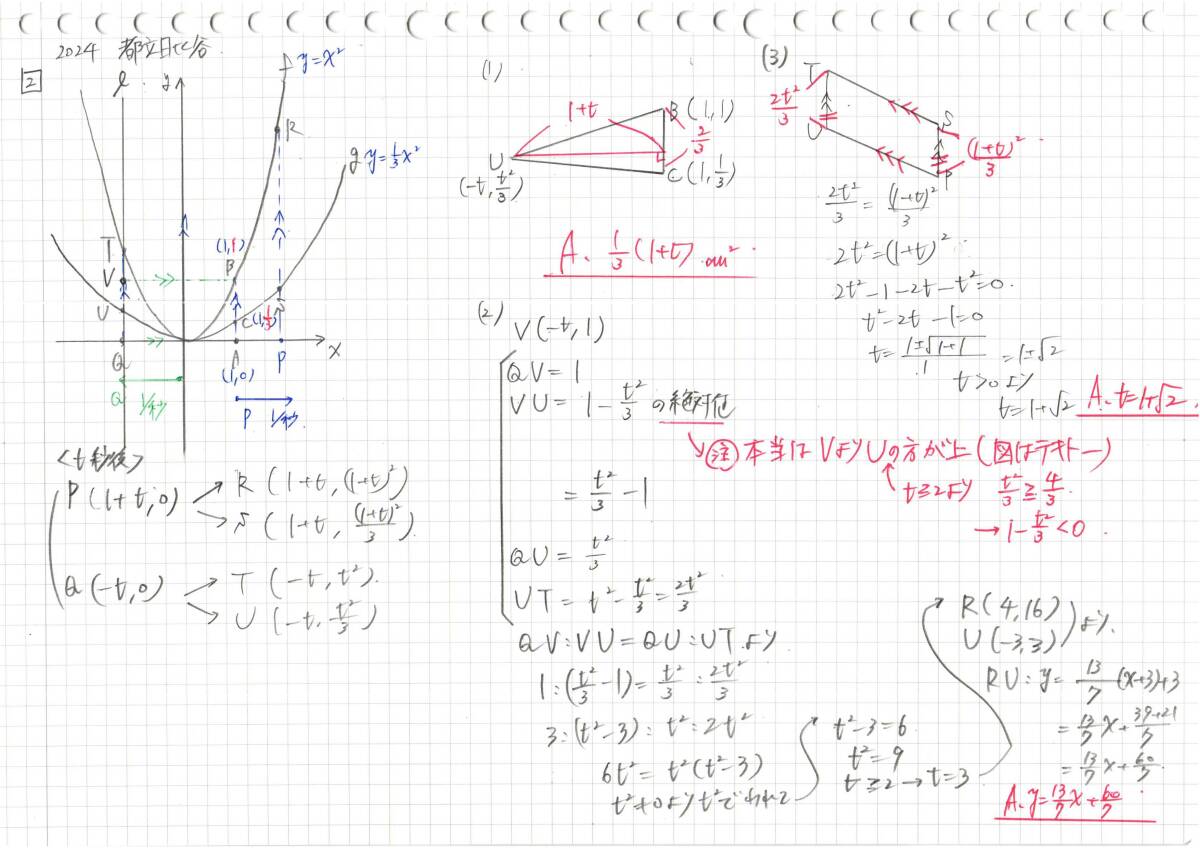 2024 都立日比谷
2
l
y
f y=x²
R
g y=1/3x²
T
V
U
(1,1)
B
C(1,1/3)
S
Q
A
P
x
(1,0)
Q 1/秒
P 1/秒
<t秒後>
P(1+t,0)
R(1+t,(1+t)²)
S(1+t,(1+t)²/3)
Q(-t,0)
T(-t,t²).
U(-t,t²/3)
(1)
1+t
B(1,1)
2/3
U
(-t,t²/3)
C(1,1/3)
A. 1/3(1+t)cm²
(2)
V(-t,1)
QV=1
VU=1-t²/3の絶対値
↘注 本当はVよりUの方が上(図はテキトー)
t≧2より t²/3≧4/3.
→1-t²/3<0.
=t²/3-1
QU=t²/3
UT=t²-t²/3=2t²/3
QV:VU=QU:UTより
1:(t²/3-1)=t²/3:2t²/3
3:(t²-3):t²:2t²
6t²=t²(t²-3)
t²≠0よりt²でわれて
t²-3=6
t²=9
t≧2→t=3
R(4,16)
U(-3,3)
より.
RU:y=13/7(x+3)+3
=13/7x+39+21/7
=13/7x+60/7
A. y=13/7x+60/7
(3)
T
2t²/3
U
S
(1+t)²/3
P
2t²/3=(1+t)²/3
2t²=(1+t)²
2t²-1-2t-t²=0.
t²-2t-1=0
t=1±√1+1/1=1±√2
t>0より
t=1+√2
A. t=1+√2.